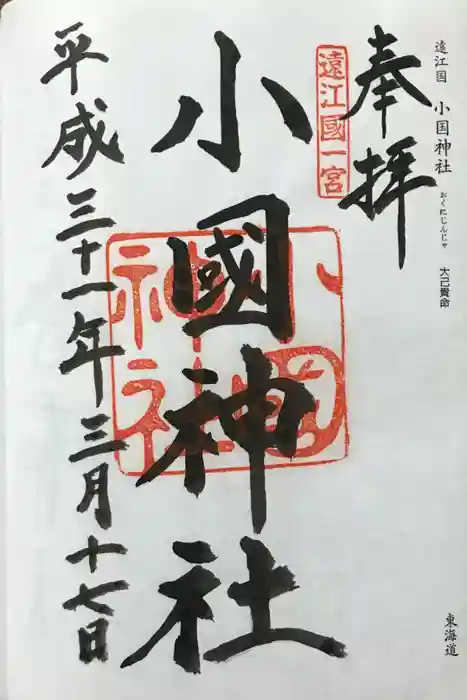 遠江国 小国神社 おくにじんじゃ 大己貴命
東海道
奉拝
遠江國一宮
小國神社
小國
神社
平成三十一年三月十七日